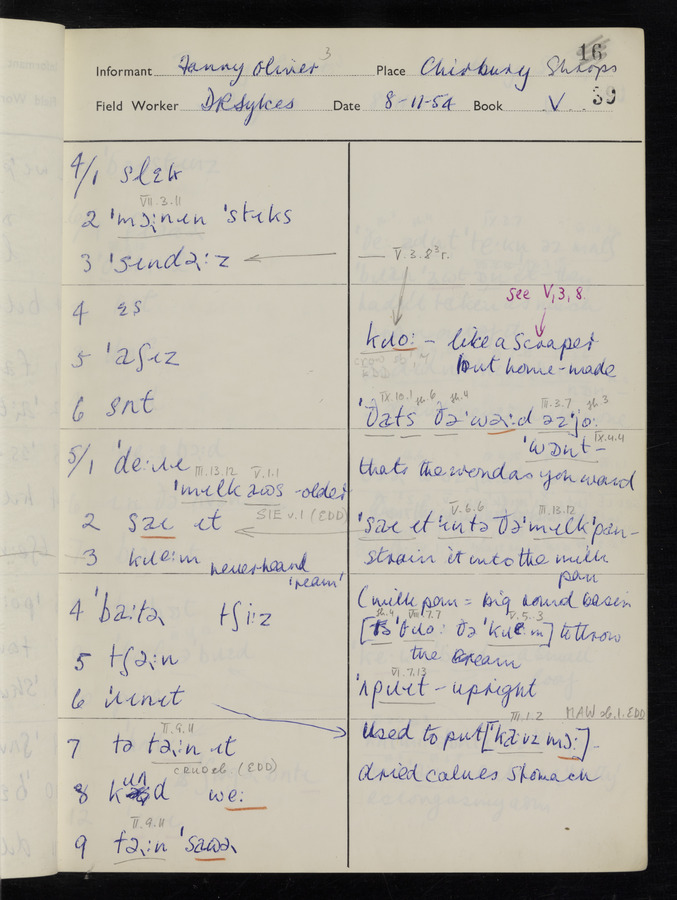 16
Informant Fanny Oliver 3 Place Chirbury Shrops
Field Worker D R Sykes Date 8-11-54 Book V 39
4/1 slɛk
VII.3.11
2 'mɔ:nɪn 'stɪks
3 'sɪndə:z
4 ɛs
5 'aʃɪz
6 snt
5/1 'de:ɹɪ
III.13.12 V.1.1
'mɪlk aʊs - older
2 saɪ ɪt
SIE v.1 (EDD)
3 kɹe:m never heard 'ream'
4 'bətə tʃi:z
5 tʃə:n
6 'ɹɛnɪt
II.9.11
7 tə tə:n ɪt
CRUD sb (EDD)
8 kɹʊd we:
II.9.11
9 tə:n 'saʊə
V.3.8 3 r.
see V,3,8.
kɹo: - like a scraper
but home-made
IX.10.1 sh.6 sh.4 III.3.7 sh 3
'ðats ðə 'wə:d əz jo:
'wɒnt - IX.4.4
thats the word as you want
V.6.6 III.13.12
'saɪ ɪt 'ɪntə ðə 'mɪlk 'pan -
strain it into the milk
pan
(milk pan = big round basin
sh.4 VIII.7.7 V.5.3
[tə 'θɹo: ðə 'kɹe:m] to throw
the cream
VI.7.13
'ʌpɹɪt - upright
III.1.2 MAW sb.1. EDD
Used to put ['kaʊz mɔ:] -
dried calves stomach